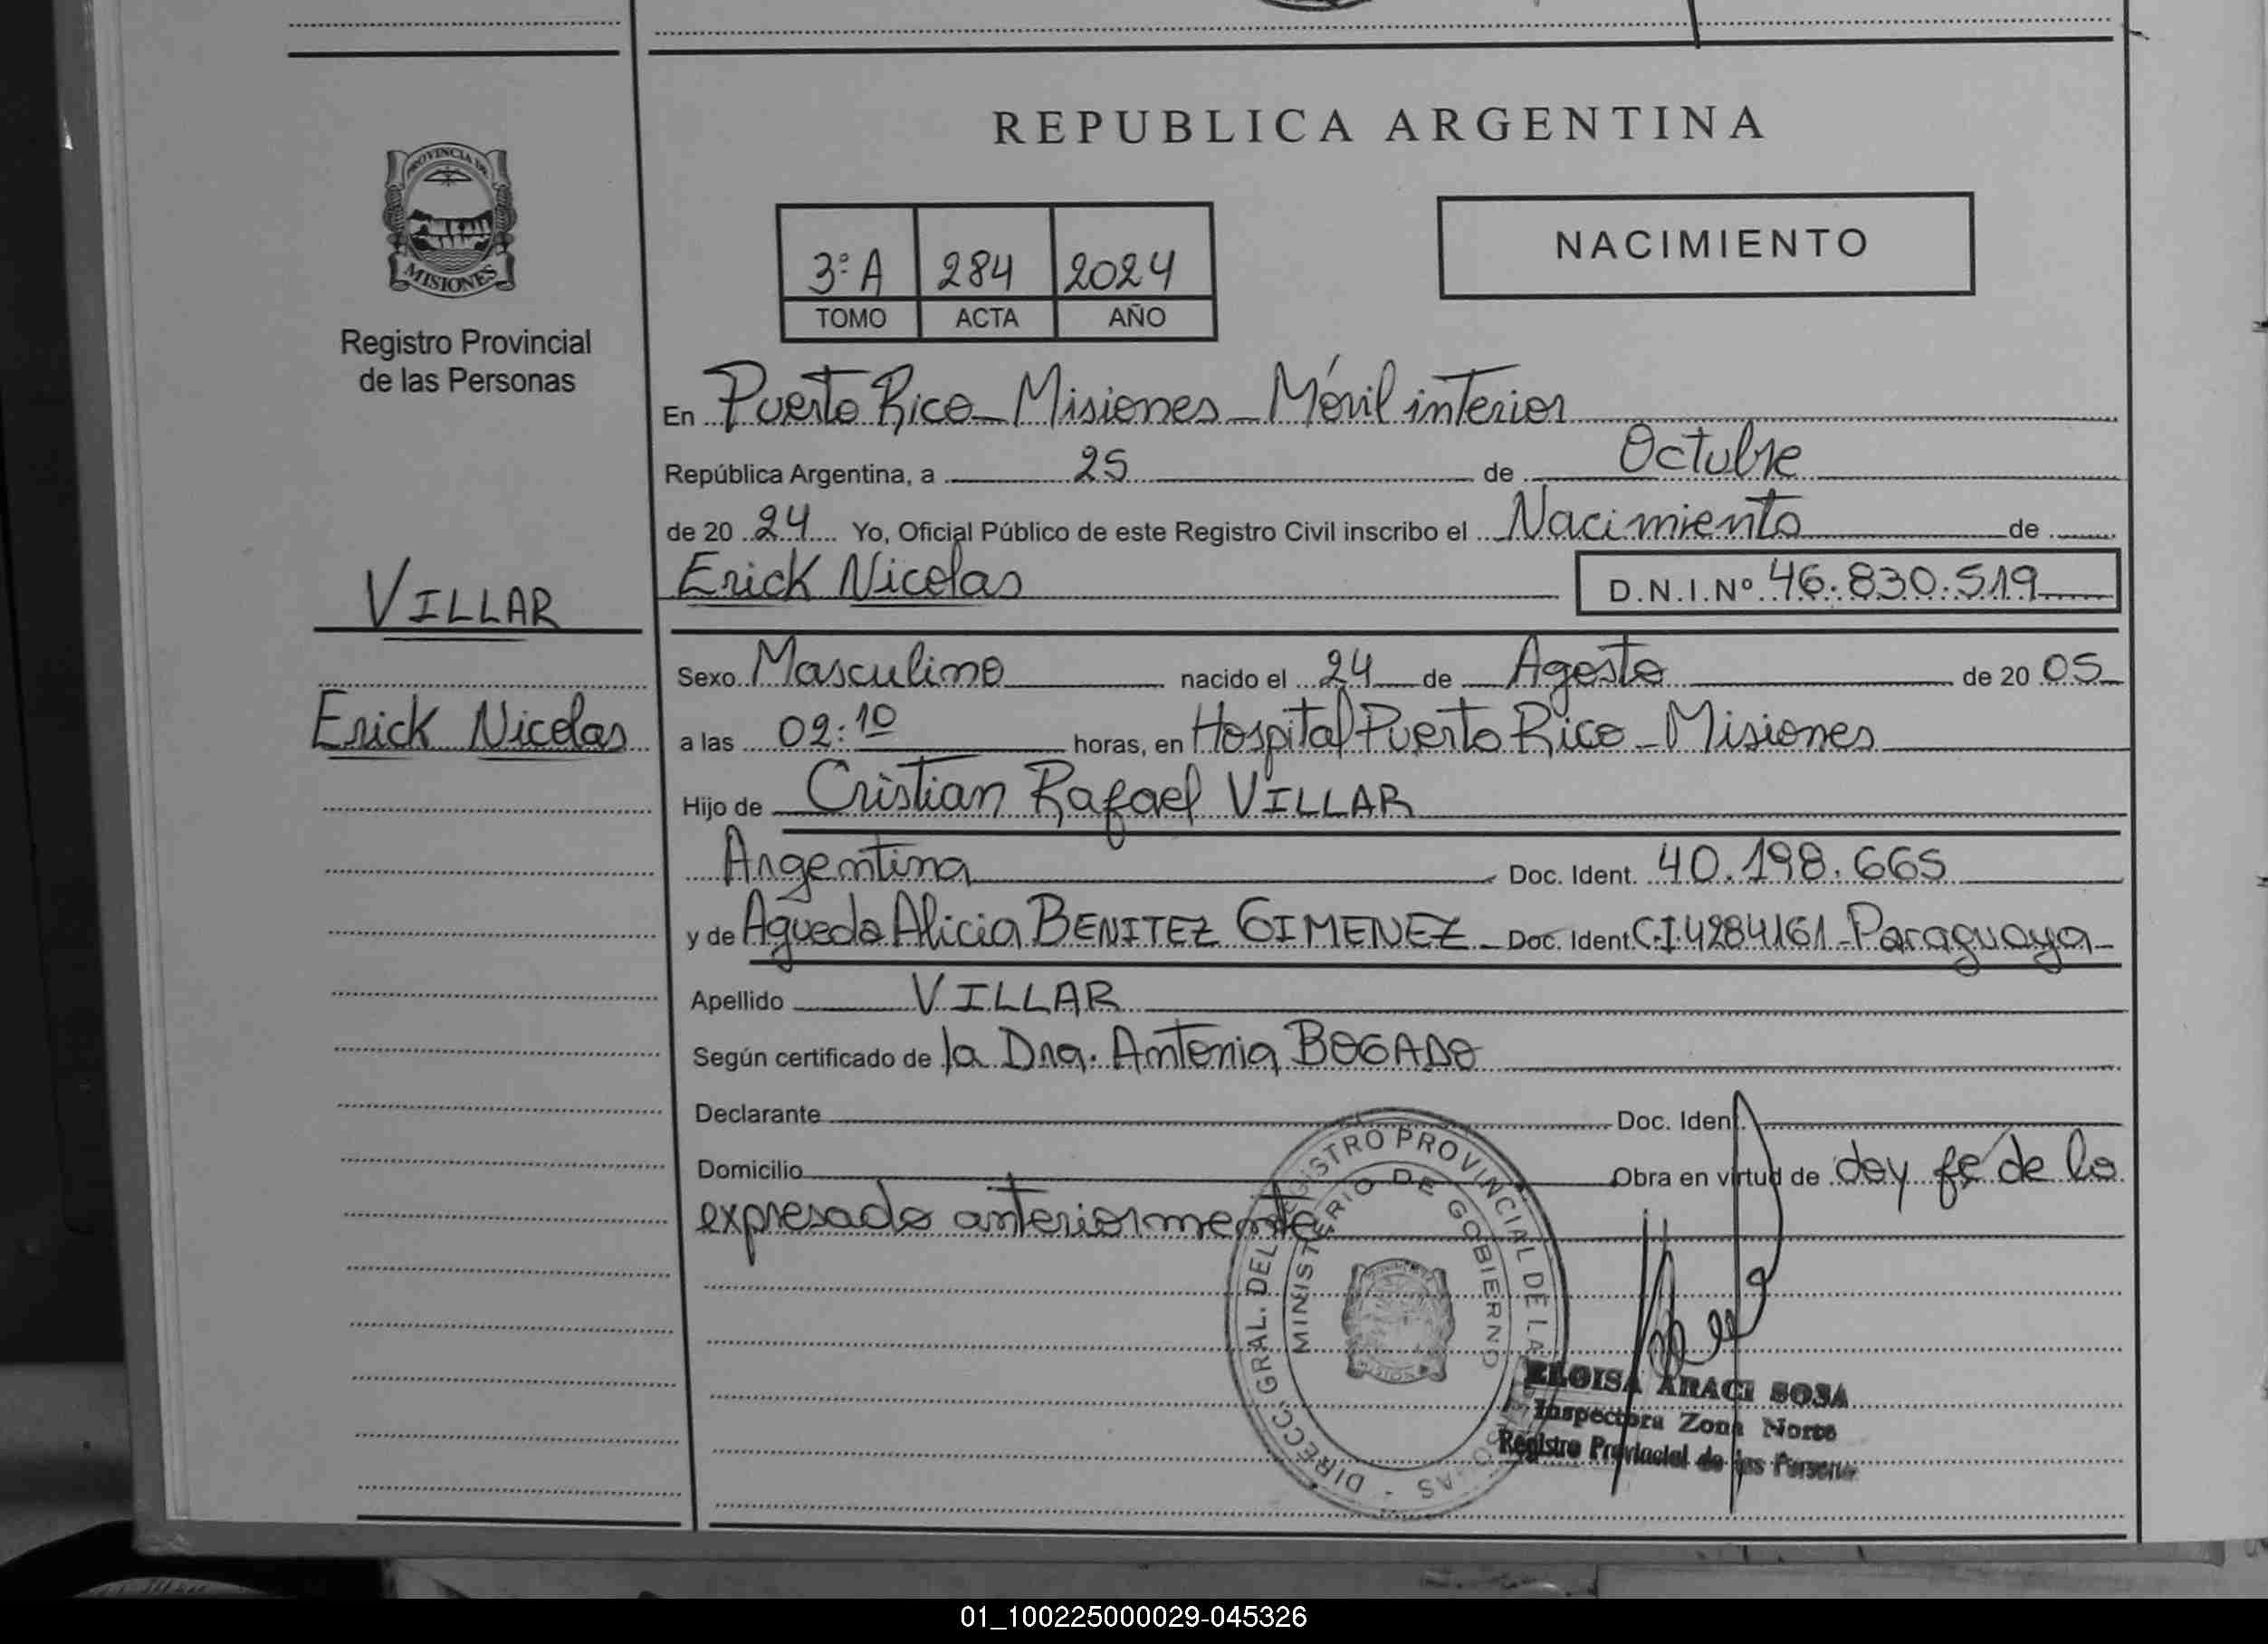 REPUBLICA ARGENTINA
PROVINCIA DE
MISIONES
Registro Provincial
de las Personas
NACIMIENTO
3ª A 284 2024
TOMO ACTA AÑO
En Puerto Rico - Misiones - Móvil interior
República Argentina, a 25 de Octubre
de 20 24 Yo, Oficial Público de este Registro Civil inscribo el Nacimiento de
VILLAR
Erick Nicolas
Erick Nicolas D.N.I.Nº 46.830.519
Sexo Masculino nacido el 24 de Agosto de 20 05
a las 02:10 horas, en Hospital Puerto Rico - Misiones
Hijo de Cristian Rafael VILLAR
Argentina Doc. Ident. 40.198.665
y de Agueda Alicia BENITEZ GIMENEZ - Doc. Ident C.I.4284161 - Paraguaya
Apellido VILLAR
Según certificado de la Dra. Antonia BOGADO
Declarante Doc. Ident.
Domicilio Obra en virtud de doy fé de lo
expresado anteriormente
DIRECC. GRAL. DEL REGISTRO PROVINCIAL DE LAS PERSONAS -
MINISTERIO DE GOBIERNO
ELOISA ARACI SOSA
Inspectora Zona Norte
Registro Provincial de las Personas
01_100225000029-045326